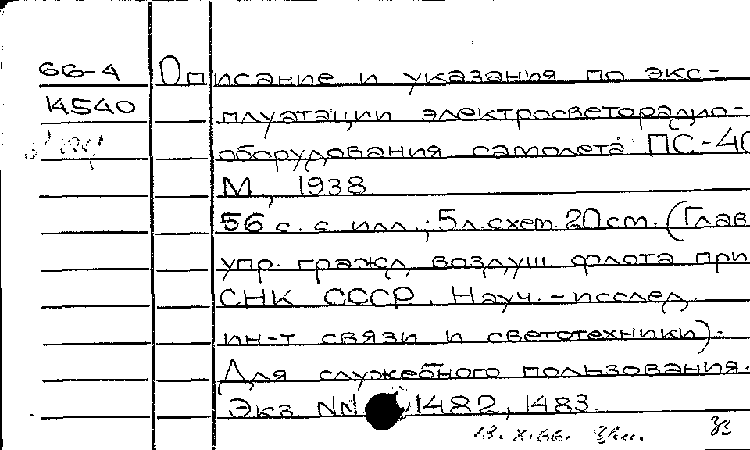 66-4 Описание и указания по экс-
14540 плуатации электросветорадио-
оборудования самолета ПС-40
М., 1938
56 с. с илл.; 5 л. схем. 20 см. (Глав.
упр. гражд. воздуш. флота при
СНК СССР. Науч.-исслед.
ин-т связи и светотехники).
Для служебного пользования.
Экз. NN 1482, 1483
13.X.66.